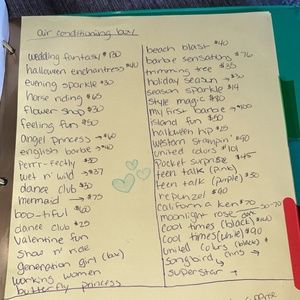 air conditioning lazy
wedding fantasy $130
halloween enchantress $40
evening sparkle $30
horse riding $65
flower shop $30
feeling fun $50
angel princess → $60
english barbie → $40
perrr-fectly $50
wet n' wild → $37
dance club $30
mermaid → $75
boo-tiful $60
dance club $25
valentine fun
show n' ride
generation girl (lax)
working women
butterfly princess
beach blast $40
barbie sensations $76
trimming tree $35
holiday season → $30
season sparkle $14
style magic $80
my first barbie → $100
island fun $50
halloween hip $25
western stampin' $90
united colors $101
pocket surprise $45
teen talk (pink)
teen talk (purple) $50
repunzel $90
california ken $70
moonlight rose
cool times (black) $60
cool times (white) $90
united colors (black)
songbird →
superstar →